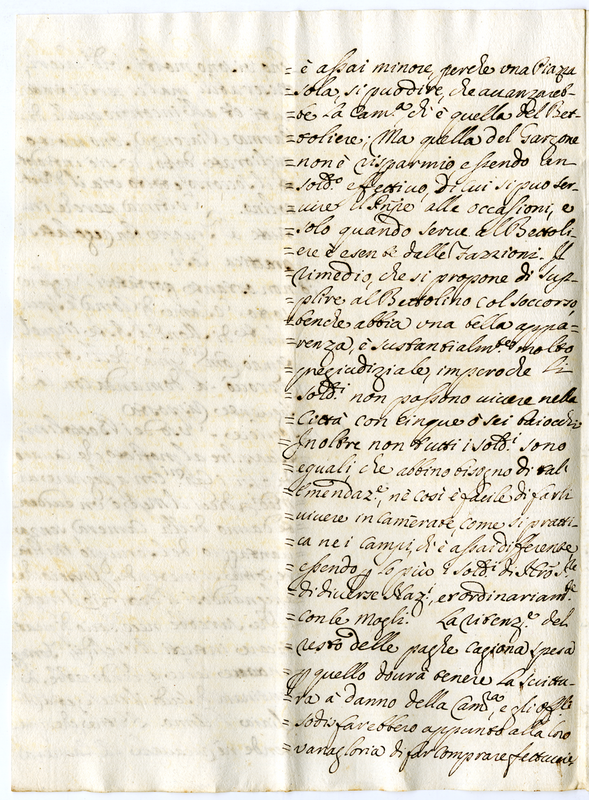 = è assai minore, perche una Piazza
= sola, si può dire, che avanzareb-
= be la Cam.ª ch'è quella del Bet-
= toliere; Ma quella del Garzone
= non è risparmio essendo un
= sold.º effettivo, di lui si può ser-
= vire il Prñpe alle occasioni, e
= solo quando serve al Bettoli-
= ere è esente dalle Fazzioni. Il
= rimedio, che si propone di sup-
= plire al Bettolino col soccorso,
= benche abbia una bella appa-
= renza, è sustantialm.te molto
= pregiudiziale, imperoche li
= sold.i non possono vivere nella
= Città con cinque ò sei baiocchi
= Inoltre non tutti i sold.i sono
= eguali che abbino bisogno di tal
= emendaz.e nè così è facile di farli
= vivere in camerate, come si pratti-
= ca ne i campi, ch'è assai differente
= essendo p lo più i sold.i di
= di diverse Naz.i, et ordinariam.te
= con le mogli. La ritenz.e del
= resto delle paghe cagiona spesa
= p quello dovrà tenere la scrittu-
= ra à danno della Cam.ra, e gli
= sodisfarebbero appunto alla loro
= vanagloria di far comprare fettuccie